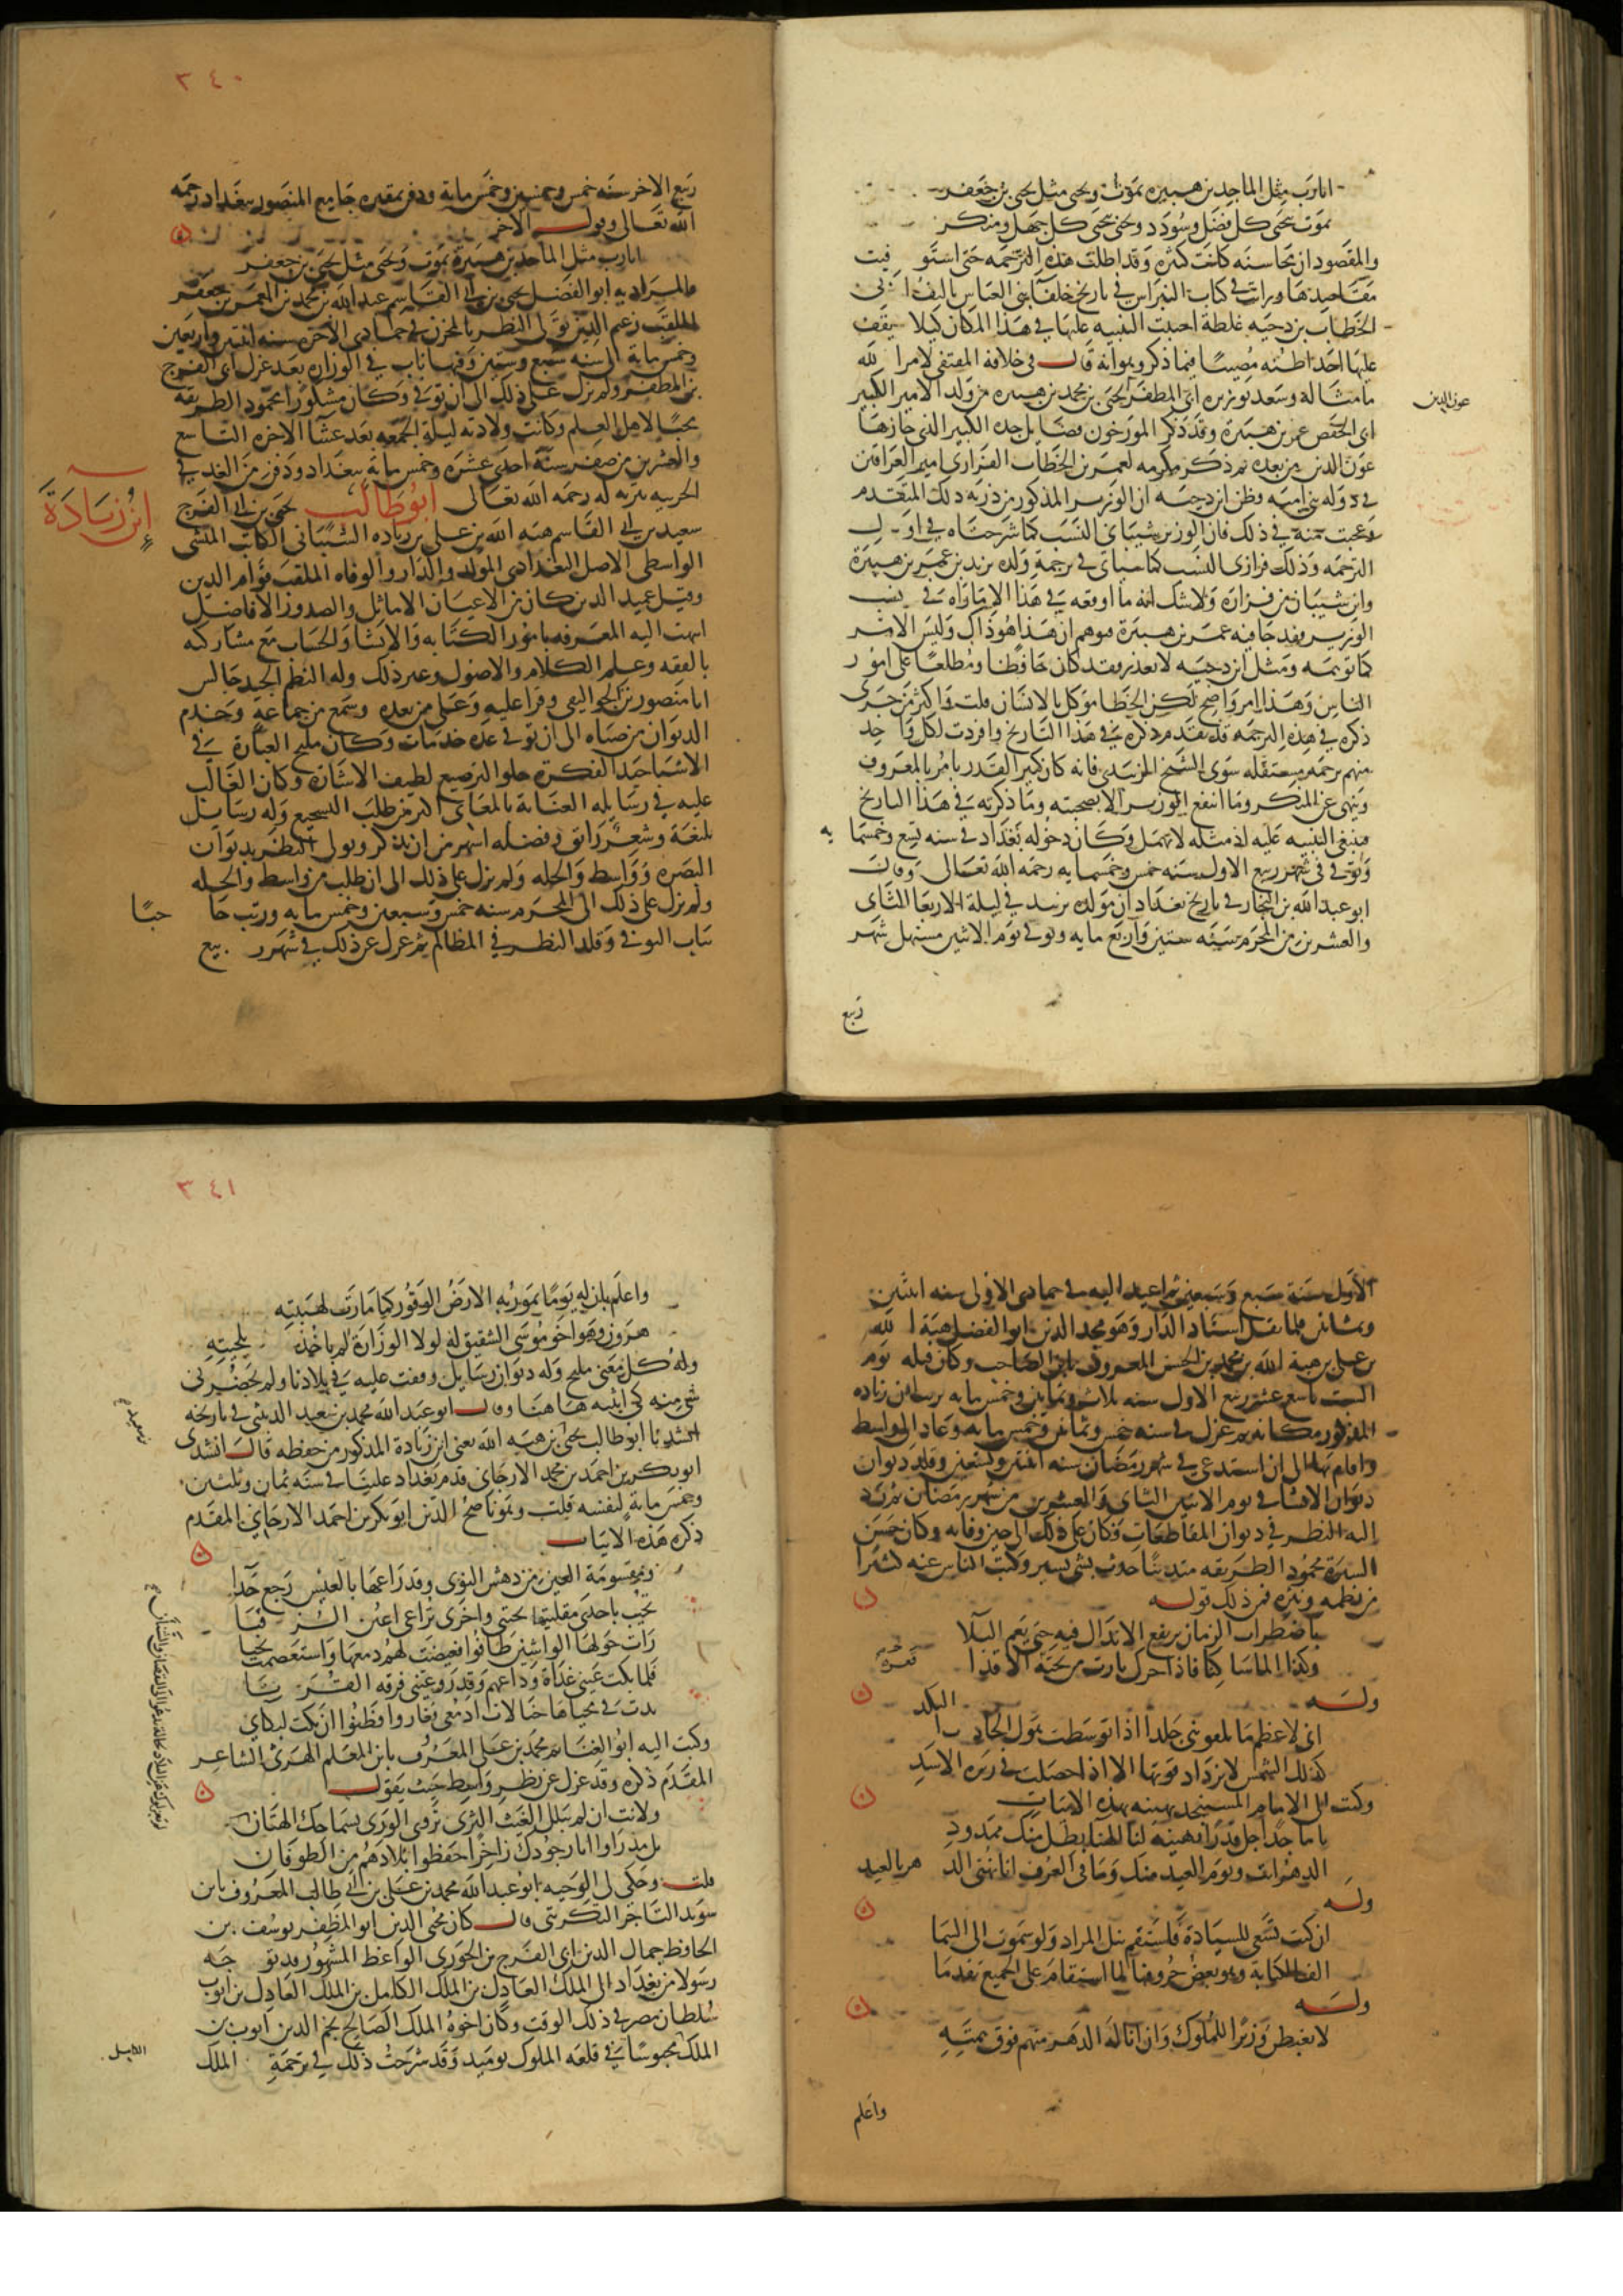 ايا رب مثل الماجد بن هبيرة يموت ويحيى مثل يحيى بن جعفر
يموت بحيى كل فضل وسودد ويحيى بحيى كل جهل ومنكر
والمقصود ان محاسنه كانت كثيرة وقد اطلت هذه الترجمه حتى استوفيت
مقاصدها ورايت في كتاب النبراس في تاريخ خلفا بني العباس تاليف ابي
الخطاب بن دحيه غلطة احببت التنبيه عليها في هذا المكان كيلا يقف
عليها احد اظنه مصيبا فيما ذكر وهو انه قال في خلافة المقتفي لامر الله
ما مثاله وسعد بوزيره ابي المظفر يحيى بن محمد بن هبيره من ولد الامير الكبير
عون الدين
ابي الحفص عمر بن هبيرة وقد ذكر المورخون فضايل جده الكبير الذي حازها
عون الدين من بعده ثم ذكر مكرمه لعمر بن الخطاب الفزاري امير العراقين
في دولة بني اميه وظن ابن دحيه ان الوزير المذكور من ذرية ذلك المتقدم
وعجبت منه في ذلك فان الوزير شيباني النسب كما شرحناه في اول
الترجمه وذلك فزاري النسب كما سياتي في ترجمة ولده يزيد بن عمر بن هبيرة
واين شيبان من فزاره ولا شك انه ما اوقعه في هذا الا ما راه في نسب
الوزير فقد جا فيه عمر بن هبيرة فوهم ان هذا هو ذاك وليس الامر
كما توهمه ومثل ابن دحيه لا يعذر فقد كان حافظا ومطلعا على امور
الناس وهذا امر واضح لكن الخطا موكل بالانسان قلت واكثر من جرى
ذكره في هذه الترجمه قد تقدم ذكره في هذا التاريخ وافردت لكل واحد
منهم ترجمه مستقله سوى الشيخ الزبيدي فانه كان كبير القدر يامر بالمعروف
وينهى عن المنكر وما انتفع الوزير الا بصحبته وما ذكرته في هذا التاريخ
فينبغي التنبيه عليه اذ مثله لا يهمل وكان دخوله بغداد في سنه تسع وخمسمايه
وتوفي في شهر ربيع الاول سنه خمس وخمسمايه رحمه الله تعالى وقال
ابو عبد الله بن النجار في تاريخ بغداد ان مولده بزبيد في ليلة الاربعا الثاني
والعشرين من المحرم سنه ستين واربع مايه وتوفي يوم الاثنين مستهل شهر
ربيع
٣٤٠
ربيع الاخر سنه خمس وخمسين وخمس ماية ودفن بمقبره جامع المنصور ببغداد رحمه
الله تعالى وقول الاخر
ايا رب مثل الماجد بن هبيرة يموت ويحيى مثل يحيى بن جعفر
فالمراد به ابو الفضل يحيى بن ابي القاسم عبد الله بن محمد بن المعمر بن جعفر
الملقب زعيم الدين تولى النظر بالمخزن في جمادى الاخره سنه اثنتين واربعين
وخمس ماية الى سنه سبع وستين وفيها ناب في الوزاره بعد عزل ابي الفرج
بن المظفر ولم يزل على ذلك الى ان توفي وكان مشكورا محمود الطريقه
محبا لاهل العلم وكانت ولادته ليلة الجمعه بعد عشا الاخره التاسع
والعشرين من صفر سنة احدى عشره وخمس ماية ببغداد ودفن من الغد في
الحربيه بتربه له رحمه الله تعالى ابو طالب يحيى بن ابي الفرج
ابن زيادة
سعيد بن ابي القاسم هبه الله بن علي بن زياده الشيباني الكاتب المنشي
الواسطي الاصل البغدادي المولد والدار والوفاه الملقب قوام الدين
وقيل عميد الدين كان من الاعيان الاماثل والصدور الافاضل
انتهت اليه المعرفه بامور الكتابه والانشا والحساب مع مشاركته
بالفقه وعلم الكلام والاصول وغير ذلك وله النظم الجيد جالس
ابا منصور بن الجواليقي وقرا عليه وعلى من بعده وسمع من جماعة وخدم
الديوان من صباه الى ان توفي عده خدمات وكان مليح العبارة في
الانشا جيد الفكرة حلو الترصيع لطيف الاشارة وكان الغالب
عليه في رسايله العناية بالمعاني اكثر من طلب التسجيع وله رسايل
بليغة وشعر رايق وفضله اشهر من ان يذكر وتولى النظر بديوان
البصره وواسط والحله ولم يزل على ذلك الى ان طلب من واسط والحله
ولم يزل على ذلك الى المحرم سنه خمس وسبعين وخمس مايه ورتب حاجبا
بباب النوبي وقلد النظر في المظالم ثم عزل عن ذلك في شهر ربيع
الاول سنة سبع وسبعين ثم اعيد اليه في جمادى الاولى سنه اثنتين
وثمانين فلما قتل استاد الدار وهو مجد الدين ابو الفضل هبة الله
بن علي بن هبة الله بن محمد بن الحسن المعروف بابن الصاحب وكان قتله يوم
السبت تاسع عشر ربيع الاول سنه ثلاث وثمانين وخمس مايه ترتب ابن زياده
المذكور مكانه ثم عزل في سنه خمس وثمانين وخمس مايه وعاد الى واسط
واقام بها الى ان استدعي في شهر رمضان سنه اثنتين وتسعين وقلد ديوان
ديوان الانشا في يوم الاثنين الثاني والعشرين من شهر رمضان ثم رد
اليه النظر في ديوان المقاطعات وكان على ذلك الى حين وفاته وكان حسن
السيرة محمود الطريقه متدينا حدث بشي يسير وكتب الناس عنه كثيرا
من نظمه ونثره فمن ذلك قوله
باضطراب الزمان يرتفع الانذال فيه حتى يعم البلا
وكذا الما ساكنا فاذا حرك ثارت من قعره الاقذا
وله
اني لاعظم ما تلقونني جلدا اذا توسطت هول الحادث النكد
كذلك الشمس لا تزداد قوتها الا اذا حصلت في زبره الاسد
وكتب الى الامام المستنجد يهنيه بهذه الابيات
يا ماجدا جل قدرا ان نهنيه لنا الهنا بظل منك ممدود
الدهر انت ويوم العيد منك وما في العرف انا نهني الدهر بالعيد
وله
ان كنت تسعى للسيادة فاستقم تنل المراد ولو سموت الى السما
الف الكتابة وهو بعض حروفها لما استقام على الجميع تقدما
وله
لا تغبطن وزيرا للملوك وان اناله الدهر منهم فوق همته
واعلم
٣٤١
واعلم بان له يوما تمور به الارض الوقور كما مارت لهيبته
هرون وهو اخو موسى الشقيق له لولا الوزارة لم ياخذ بلحيته
وله كل معنى مليح وله ديوان رسايل وقفت عليه في بلادنا ولم يحضرني
شي منه كي اثبته هاهنا وقال ابو عبد الله محمد بن سعيد الدبيثي في تاريخه
انشدنا ابو طالب يحيى بن هبه الله يعني ابن زيادة المذكور من حفظه قال انشدني
ابو بكر بن احمد بن محمد الارجاني قدم بغداد علينا في سنه ثمان وثلثين
وخمس ماية لنفسه قلت وهو ناصح الدين ابو بكر بن احمد الارجاني المقدم
ذكره هذه الابيات
ومقسومة العينين من دهش النوى وقد راعها بالعيس رجع حدا
تجيب باحدى مقلتيها تحيتي واخرى تراعي اعين الرقبا
رات حولها الواشين طافوا فغيضت لهم دمعها واستعصمت بحيا
فلما بكت عيني غداة وداعهم وقد روعتني فرقه القرنا
بدت في محياها خيالات ادمعي فغاروا وظنوا ان بكت لبكاي
وكتب اليه ابو الغنايم محمد بن علي المعروف بابن المعلم الهرثي الشاعر
المقدم ذكره وقد عزل عن نظر واسط حيث يقول
ولانت ان لم يبلل الغيث الثرى تروي الورى بسماحك الهتان
بل مذ راوا انهار جودك زاخرا حفظوا بلادهم من الطوفان
قلت وحكى لي الوجيه ابو عبد الله محمد بن علي بن ابي طالب المعروف بابن
سويد التاجر التكريتي قال كان محيي الدين ابو المظفر يوسف بن
الحافظ جمال الدين ابي الفرج بن الجوزي الواعظ المشهور قد توجه
رسولا من بغداد الى الملك العادل بن الملك الكامل بن الملك العادل بن ايوب
سلطان مصر في ذلك الوقت وكان اخوه الملك الصالح نجم الدين ايوب بن
الملك محبوسا في قلعه الملوك يوميد وقد شرحت ذلك في ترجمة الملك
الكامل